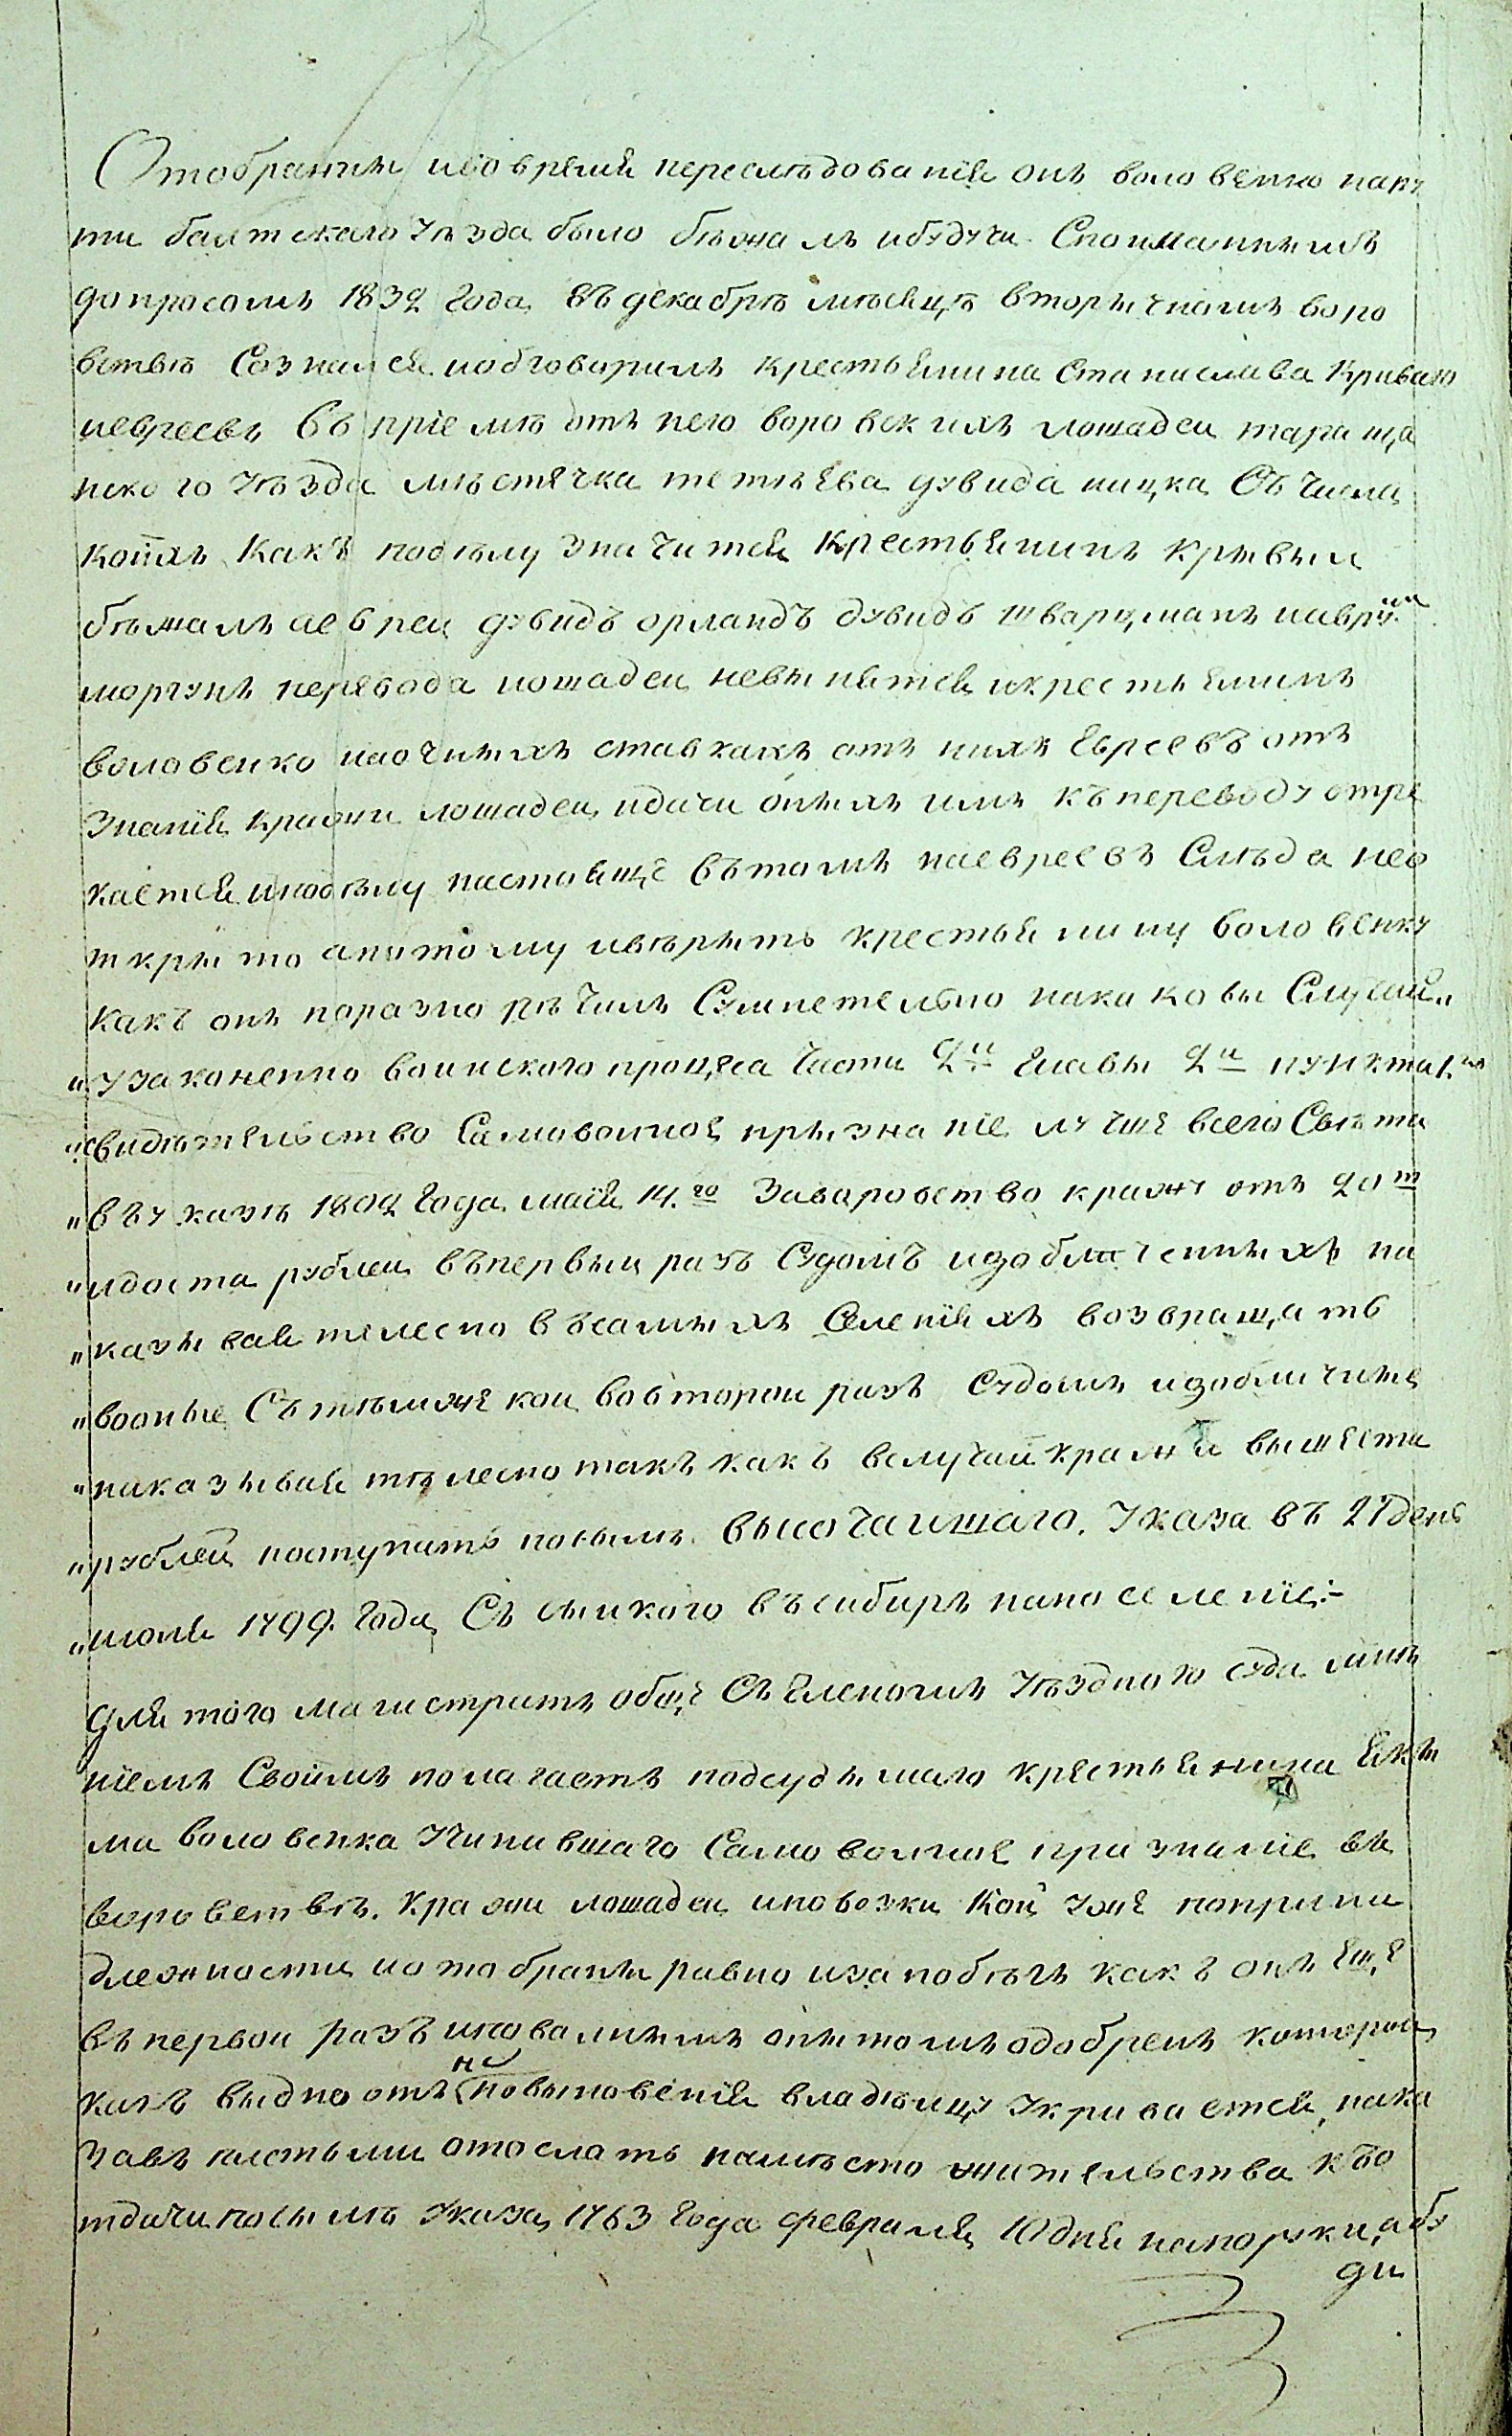 Отобранъи ибо время переслѣдованія онъ воловенко напу
ти балтскаго Уѣзда было бѣжалъ ибудучи Спойманнымъ
допросомъ 1832 года въ декабрѣ мѣсяцѣ вторычномъ воро
вствѣ Сознался иобговорилъ крестьянина Станислава Криваго
иевреевъ Въ пріемѣ отъ него воровскихъ лошадей тараща
нского Уѣзда мѣстячка тетіева дувида ницка Съ числа
коихъ Какъ подѣлу значится Крестьянинъ Крывый
бѣжалъ аевреи дувидъ орландъ дувидъ шварцманъ иаврумъ
моргунъ перевода лошадей невинятся икрестьянинъ
воловенко наочныхъ ставкахъ отъ нихъ Евреевъ отъ
Знанія кражи лошадей идачи оныхъ имъ къ переводу отре
кается иподѣлу настояще вътомъ наевреевъ Слѣда нео
ткрыто апотому ивѣрить крестьянину воловенку
Какъ онъ поразно рѣчилъ Сумнетельно накаковы Случаи
„узаконенно воинского процеса Части 2й Главы 2й пункта 1го
„свидѣтельство Самовольное прызнаніе лучше всего Свѣта
„въуказѣ 1802 Года маія 14.го Заваровство кражу отъ 20т
„идоста рублей въпервый разъ Судомъ изобличенныхъ на
„казывая телесно въсамыхъ Селеніяхъ возвращать
„вооные Сътѣмже кои вовторой разъ Судомъ изобличице
„наказывая тѣлесно такъ какъ вслучаи кражи вышеста
„рублей поступать посилѣ. Высочаишаго. Указа въ 27 день
„июля 1799. Года Съ сылкого въсибирь напоселеніе:-
Для того магистратъ обще Съ Членомъ Уѣздного суда мнѣ
ніемъ Своимъ полагаетъ подсудымаго крестьянина Якы
ма воловенка Учинившаго Самовольное признаніе въ
воровствѣ. кражи лошадей иповозки Кой уже поприна
длежности иотобраны равно иза побѣгъ какъ онъ Еще
въ первой разъ иповальнымъ опытомъ одобренъ которой
какъ выдно отъ неповыновенія владѣлцу Укривается, нака
Завъ плетьми отослать намѣсто жительства къо
тдачи посылѣ Указа 1763 Года февраля 10 дня напоруки, абу
ди